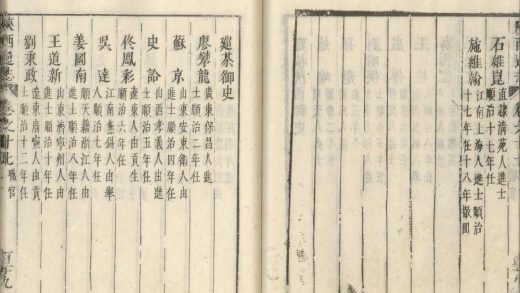 石維崑
直隷清苑人進士
順治十七年任
施維翰
江南上海人進士順治
十七年任十八年撤囬
巡茶御史
廖攀龍
廣東保昌人進
士順治二年任
蘇京
山東安東衛人由
進士順治四年任
史
山西孝義人由進
士順治五年任
佟鳳彩
遼東人由貢生
順治六年任
吳達
江南無錫人由舉
人順治七年任
姜圖南
順天籍浙江人由
進士順治八年任
王道新
山東濟寧州人由
進士順治十年任
劉秉政
遼東廣寧人由貢
士順治十二年任
陝西通志
職官